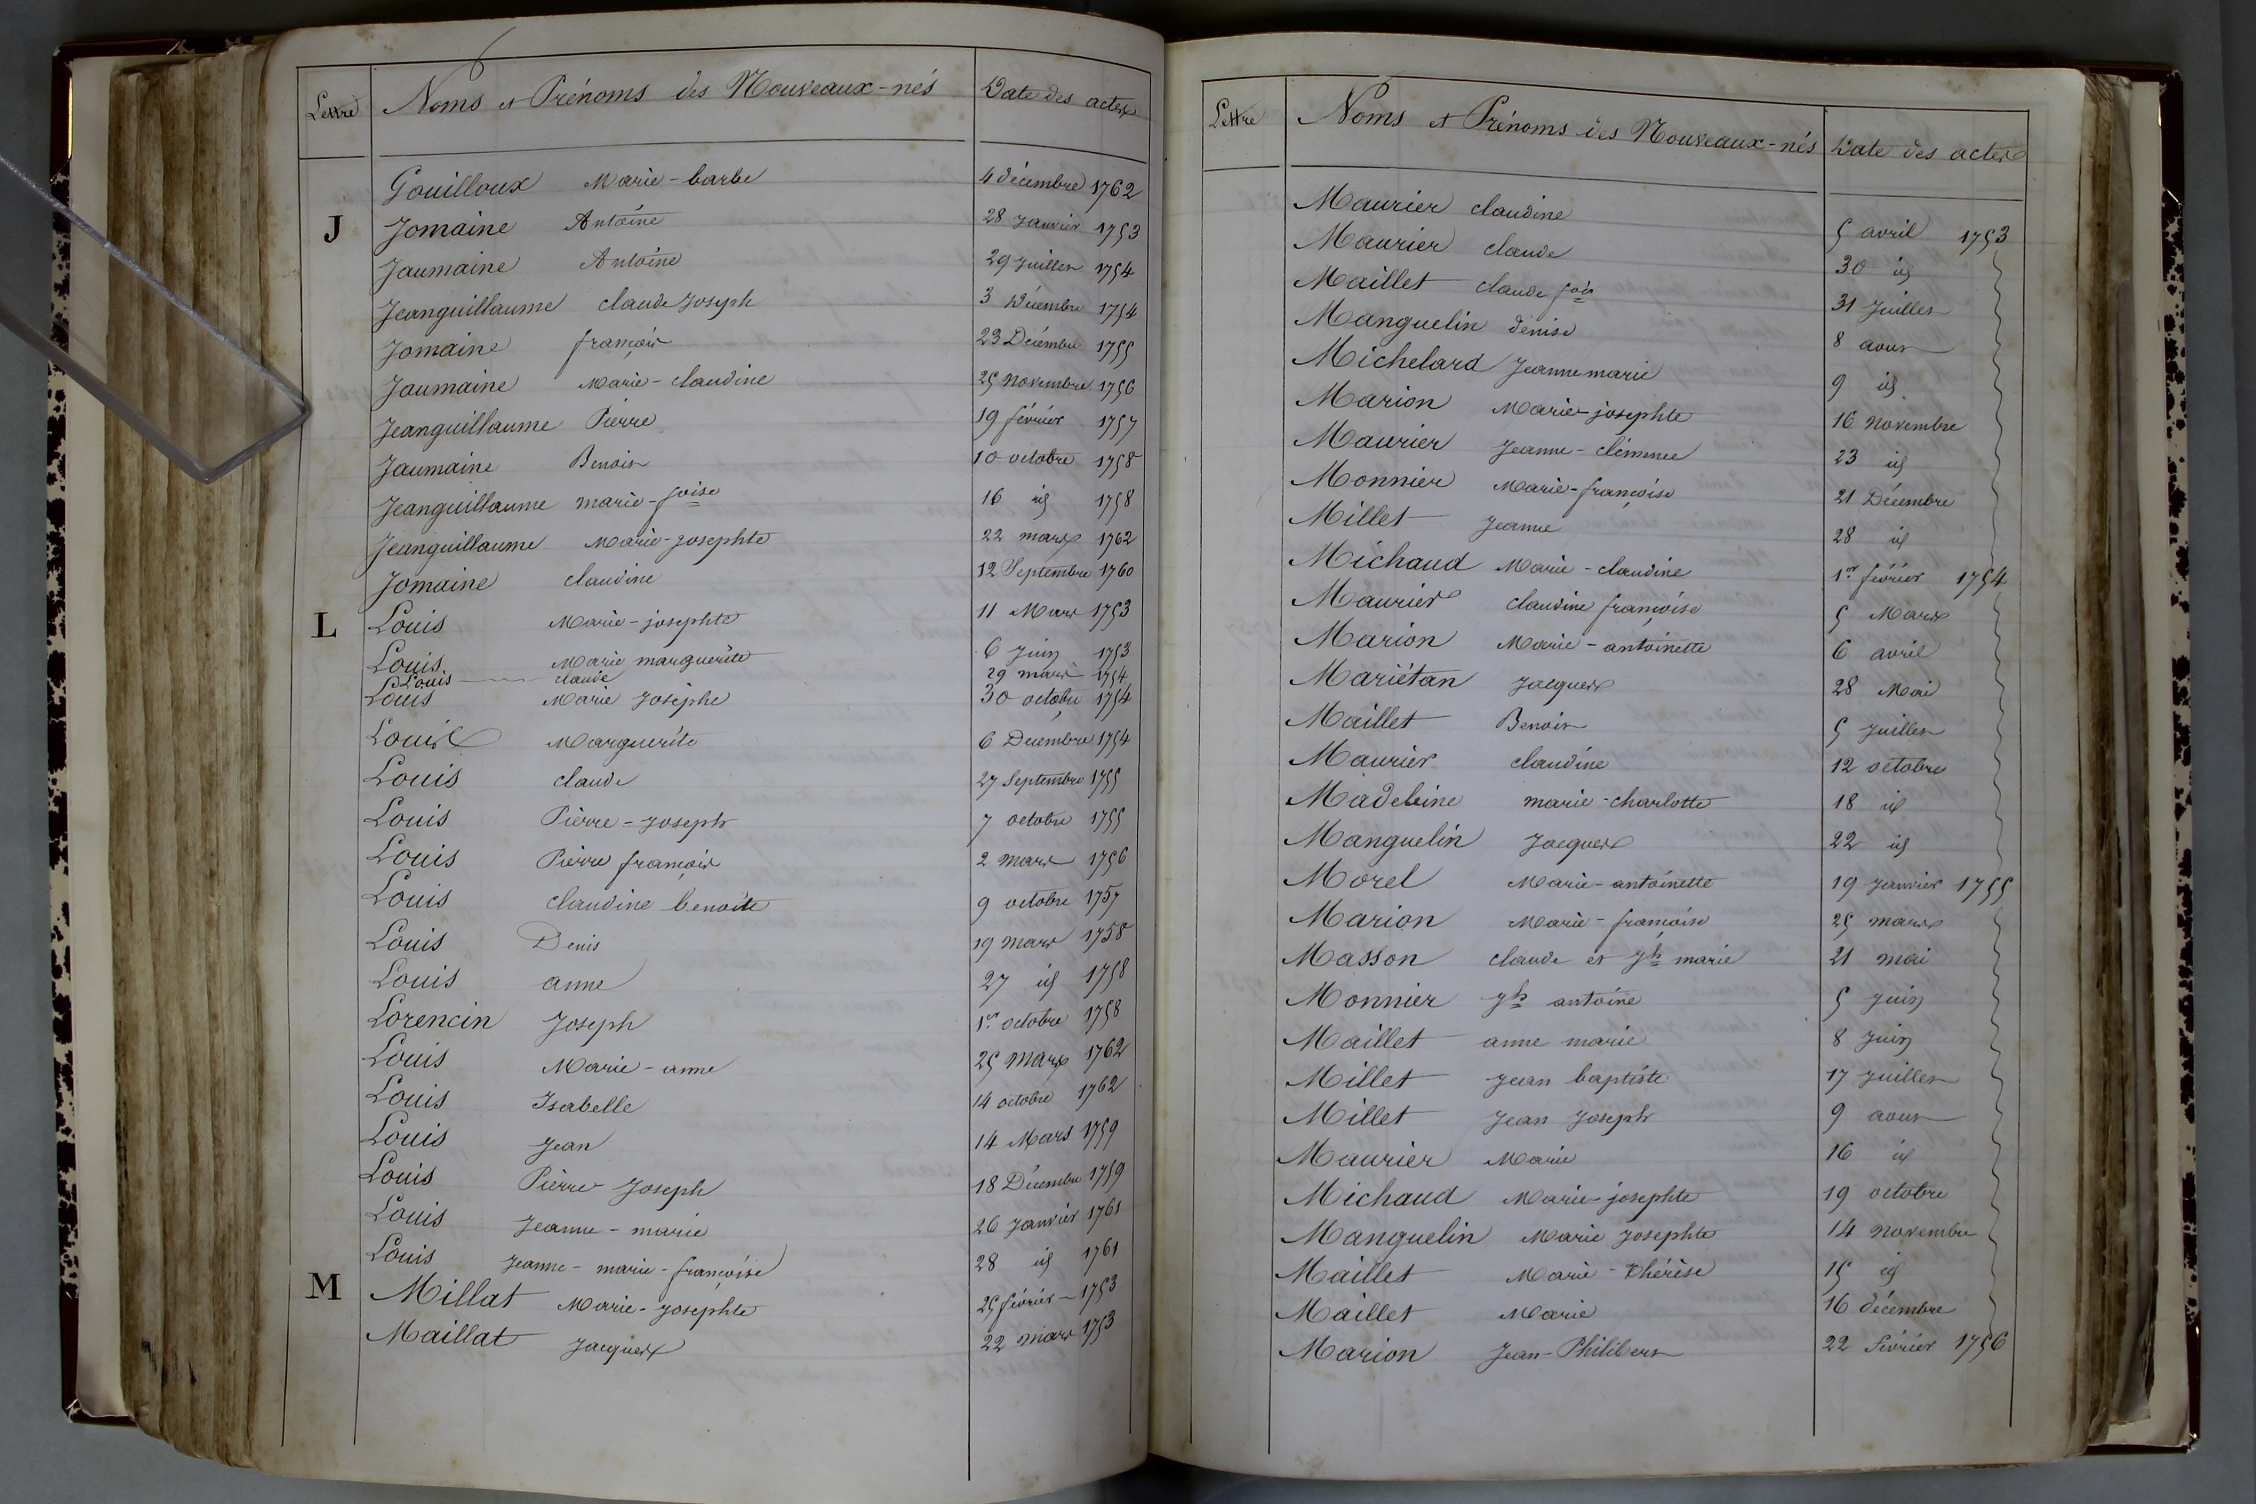 Lettre Noms et Prénoms des Nouveaux-nés Date des actes
Gouilloux Marie-barbe 4 décembre 1762
J Jomaine Antoine 28 Janvier 1753
Jaumaine Antoine 29 Juillet 1754
Jeanguillaume claude Joseph 3 Décembre 1754
Jomaine françois 23 Décembre 1755
Jaumaine Marie-claudine 25 Novembre 1756
Jeanguillaume Pierre 19 février 1757
Jaumaine Benoit 10 octobre 1758
Jeanguillaume marie-foise 16 id 1758
Jeanguillaume Marie-Josephte 22 mars 1762
Jomaine claudine 12 Septembre 1760
L Louis Marie-josephte 11 Mars 1753
Louis Marie marguerite 6 Juin 1753
Louis claude 29 mars 1754
Louis Marie Josephe 30 octobre 1754
Louis Marguerite 6 Décembre 1754
Louis claude 27 Septembre 1755
Louis Pierre-Joseph 7 octobre 1755
Louis Pierre françois 2 mars 1756
Louis claudine benoite 9 octobre 1757
Louis Denis 19 mars 1758
Louis anne 27 id 1758
Lorencin Joseph 1er octobre 1758
Louis Marie-anne 25 Mars 1762
Louis Isabelle 14 octobre 1762
Louis Jean 14 Mars 1759
Louis Pierre Joseph 18 Décembre 1759
Louis Jeanne-marie 26 Janvier 1761
Louis Jeanne-marie-françoise 28 id 1761
M Millat Marie-Josephte 25 février 1753
Maillat Jacques 22 mars 1753
Lettre Noms et Prénoms des Nouveaux-nés Date des actes
Maurier claudine 5 avril 1753
Maurier claude 30 id
Maillet claude fois 31 Juillet
Manguelin denise 8 aout
Michelard Jeanne marie 9 id
Marion Marie-josephte 16 Novembre
Maurier Jeanne-clémence 23 id
Monnier Marie-françoise 21 Décembre
Millet Jeanne 28 id
Michaud Marie-claudine 1er février 1754
Maurier claudine françoise 5 Mars
Marion Marie-antoinette 6 avril
Mariétan Jacques 28 Mai
Maillet Benoit 5 Juillet
Maurier claudine 12 octobre
Madeleine marie-charlotte 18 id
Manguelin Jacques 22 id
Morel Marie-antoinette 19 Janvier 1755
Marion Marie-françoise 25 mars
Masson claude et Jh marie 21 mai
Monnier Jh antoine 5 Juin
Maillet anne marie 8 Juin
Millet Jean baptiste 17 Juillet
Millet Jean Joseph 9 aout
Maurier Marie 16 id
Michaud Marie-josephte 19 octobre
Manguelin Marie Josephte 14 Novembre
Maillet Marie-Thérèse 15 id
Maillet Marie 16 décembre
Marion Jean-Philibert 22 Février 1756